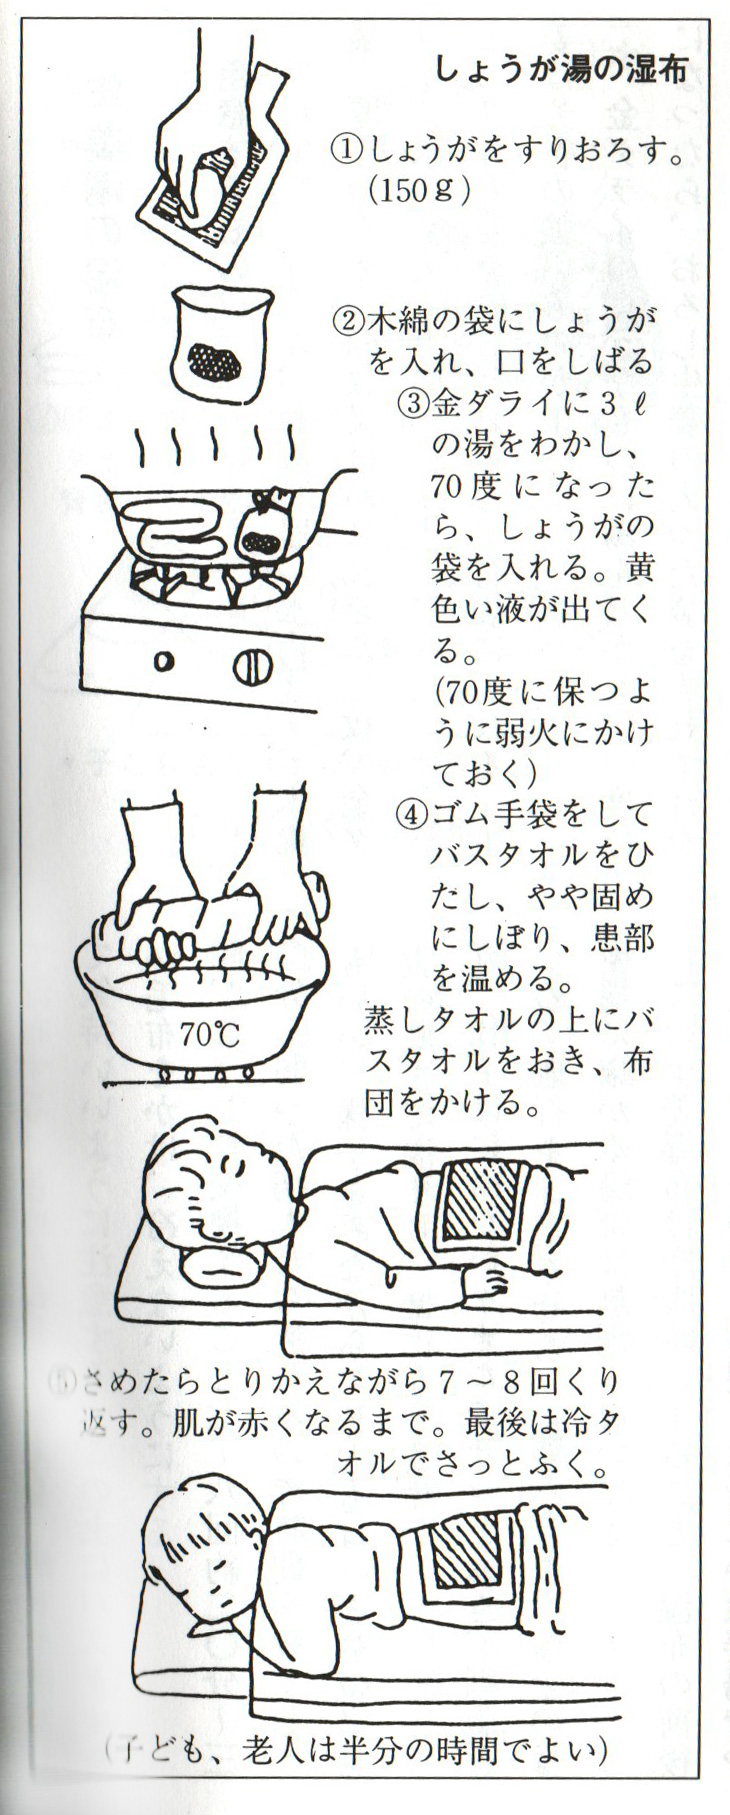 しょうが湯の湿布
①しょうがをすりおろす。
(150g)
②木綿の袋にしょうが
を入れ、口をしばる
③金ダライに3ℓ
の湯をわかし、
70度になった
ら、しょうがの
袋を入れる。黄
色い液が出てく
る。
(70度に保つよ
うに弱火にかけ
ておく)
④ゴム手袋をして
バスタオルをひ
たし、やや固め
にしぼり、患部
を温める。
70℃
蒸しタオルの上にバ
スタオルをおき、布
団をかける。
⑤さめたらとりかえながら7〜8回くり
返す。肌が赤くなるまで。最後は冷タ
オルでさっとふく。
(子ども、老人は半分の時間でよい)